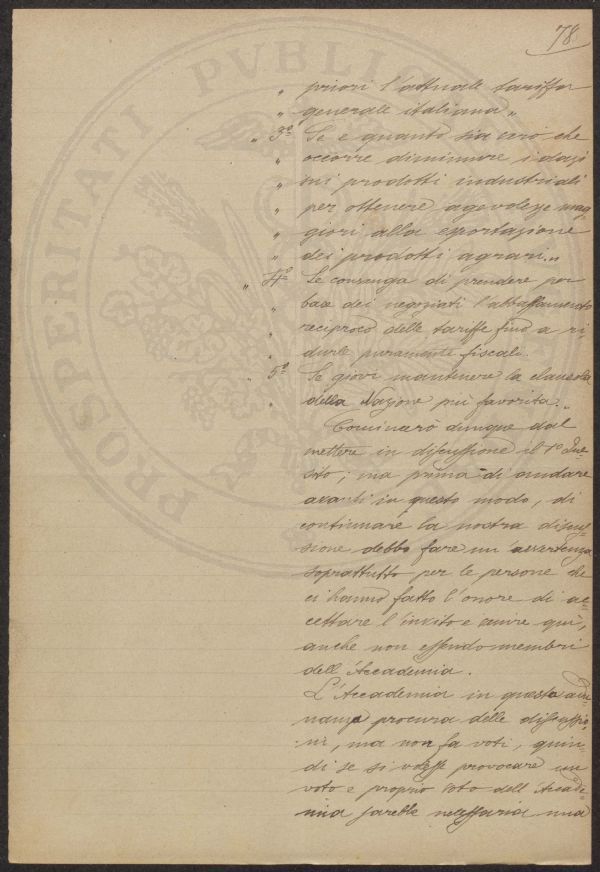 78
„ priori l'attuale tariffa
„ generale italiana„
„ 3º Se e quanto sia vero che
„ occorre diminuire i dazi
„ sui prodotti industriali
„ per ottenere agevolezze mag-
„ giori alla esportazione
„ dei prodotti agrari„
„ 4º Se convenga di prendere per
base dei negoziati l'abbassamento
„ reciproco delle tariffe fino a ri-
„ durle puramente fiscali.
5º Se giovi mantenere la clausola
„ della Nazione più favorita„
Comincerò dunque dal
mettere in discussione il 1º Que-
sito; ma prima di andare
avanti in questo modo, di
continuare la nostra discus-
sione debbo fare un'avvertenza
soprattutto per le persone che
ci hanno fatto l'onore di ac-
cettare l'invito e qui,
anche non essendo membri
dell'Accademia.
L'Accademia in questa adu-
nanza procura delle discussio-
ni, ma non fa voti, quin-
di se si volesse provocare un
voto e proprio voto dell'Accade-
mia sarebbe necessaria una
PROSPERITATI PVBLIC